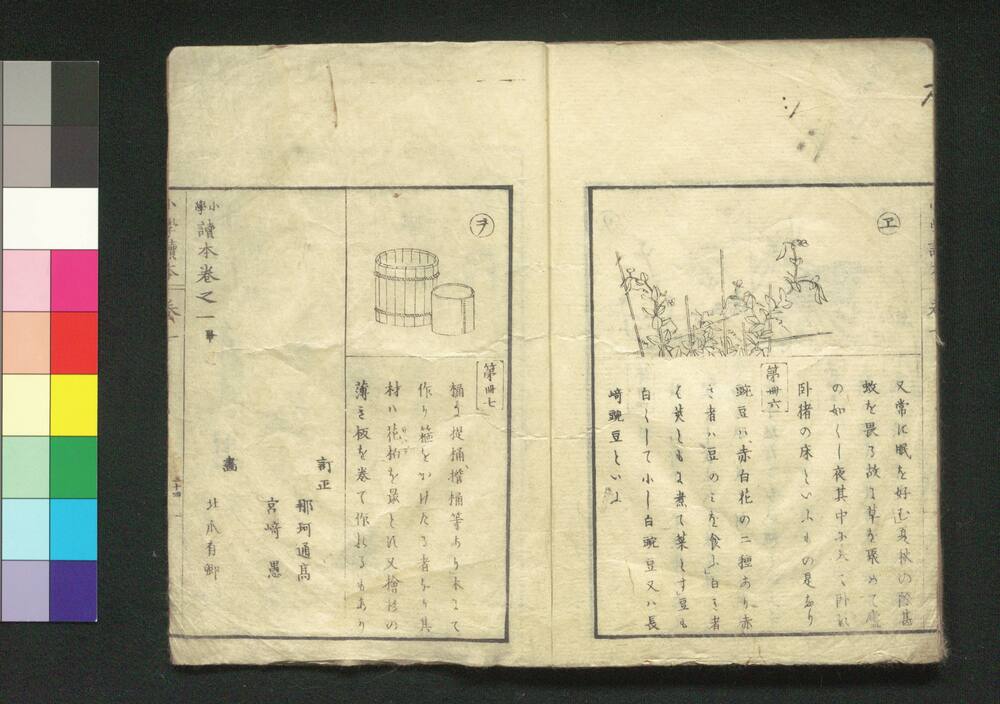 ヱ
又常に眠を好む夏秋の際甚
蚊を畏る故に草を聚めて廬
の如くし夜其中に入て臥す
臥猪の床といふもの是なり
第卅六
豌豆ハ赤白花の二種あり赤
き者ハ豆のミを食ふ白き者
ハ莢ともに煮て菜とす豆も
白くして小し白豌豆又ハ長
崎豌豆といふ
ヲ
第卅七
桶は提桶擔桶等あり木にて
作り箍をかけたる者なり其
材ハ花柏を最とす又檜杉の
薄き板を巻て作れるもあり
小學讀本巻之一
訂正
那珂通高
宮崎愚
畵
北爪有郷
五十四